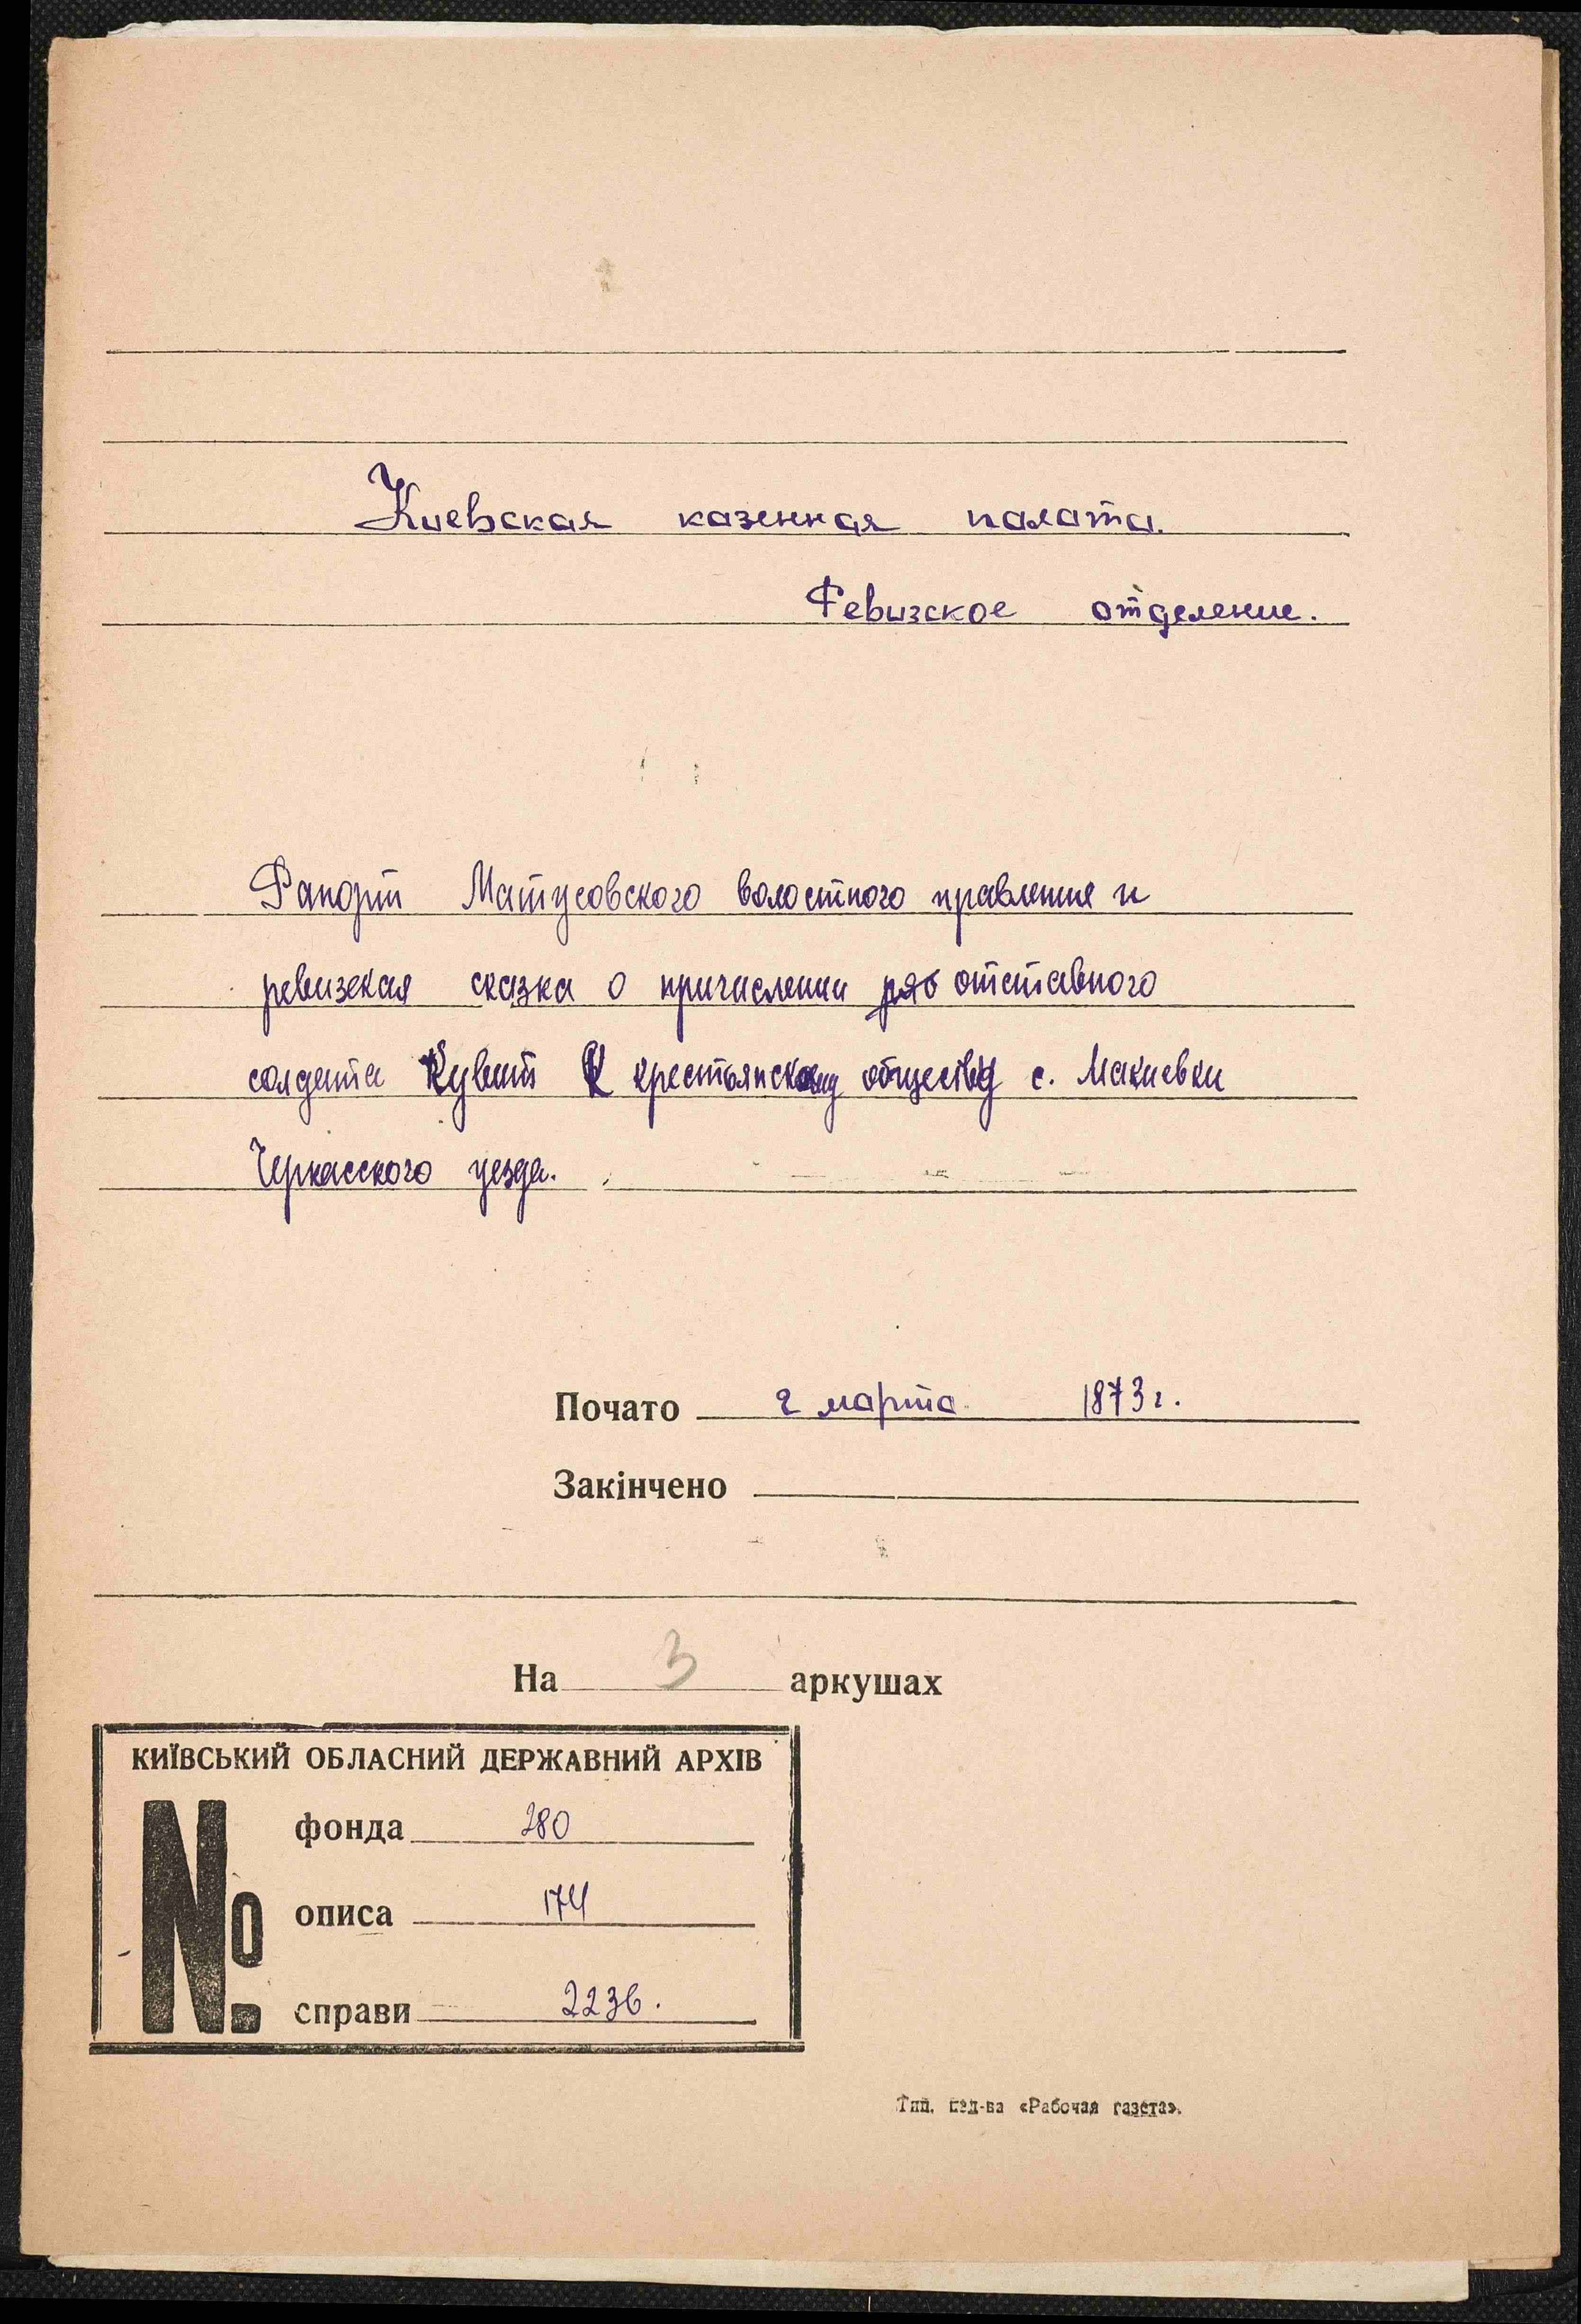 Киевская казенная палата.
Ревизское отделение.
Рапорт Матусовского волостного правления и
ревизская сказка о причислении отставного
солдата к крестьянскому обществу с. Макиевки
Черкасского уезда.
Почато 2 марта 1873 г.
Закінчено
На 3 аркушах
КИЇВСЬКИЙ ОБЛАСНИЙ ДЕРЖАВНИЙ АРХІВ
№
фонда 280
описа 174
справи 2236.
Тип. изд-ва «Рабочая газета».